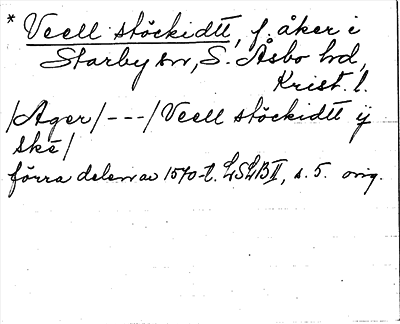 * Veell stöckidtt, f. åker i
Starby sn, S. Åsbo hd,
Krist. l.
/Ager/---/Veell stöckidtt ij
ske/
förra delen av 1570-t. LSLB II, s. 5. orig.